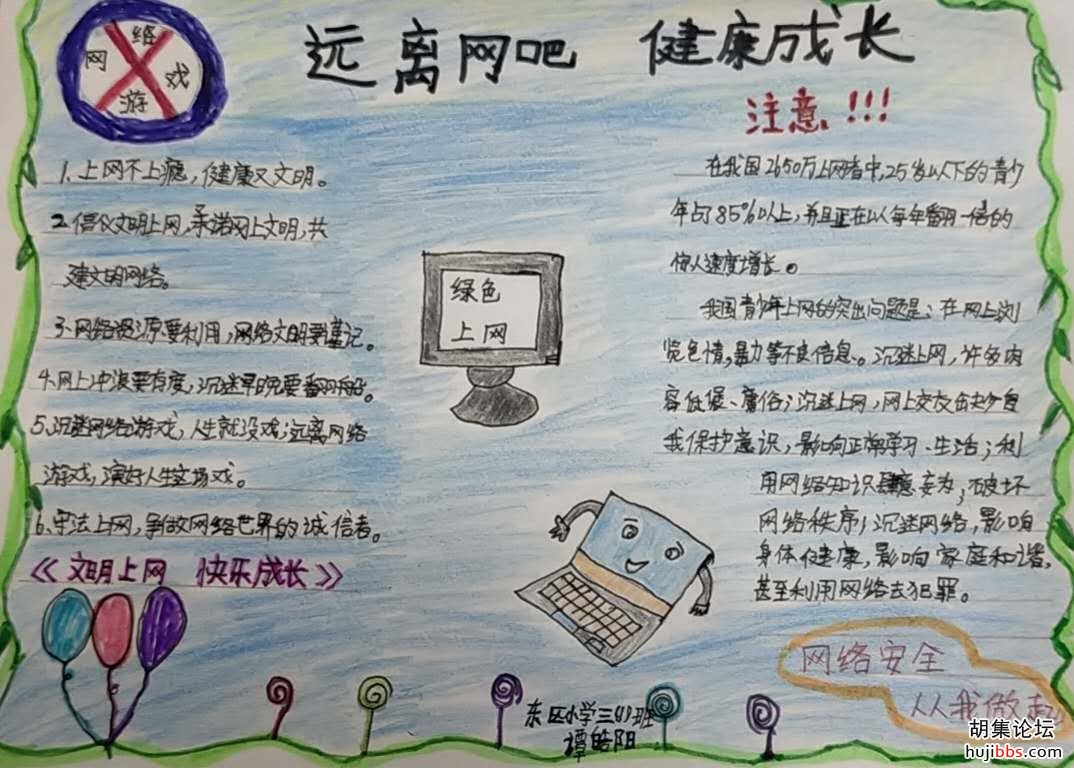 网络
游戏
远离网吧 健康成长
注意!!!
1. 上网不上瘾,健康又文明。
2. 倡仪文明上网,承诺网上文明,共
建文明网络。
3、网络资源要利用,网络文明要谨记。
4、网上冲浪要有度,沉迷早晚要翻船。
5、沉迷网络游戏,人生就没戏;远离网络
游戏,演好人生这场戏。
6、守法上网,争做网络世界的诚信者。
《文明上网 快乐成长》
绿色
上网
在我国2650万上网者中,25岁以下的青少
年占85%以上,并且正在以每年翻一倍的
惊人速度增长。
我国青少年上网的突出问题是:在网上浏
览色情,暴力等不良信息。沉迷上网,许多内
容低俗、庸俗;沉迷上网,网上交友缺少自
我保护意识,影响正常学习、生活;利
用网络知识肆意妄为,破坏
网络秩序;沉迷网络,影响
身体健康,影响家庭和谐,
甚至利用网络去犯罪。
网络安全
从我做起
东区小学三(4)班
谭皓阳
胡集论坛
hujibbs.com